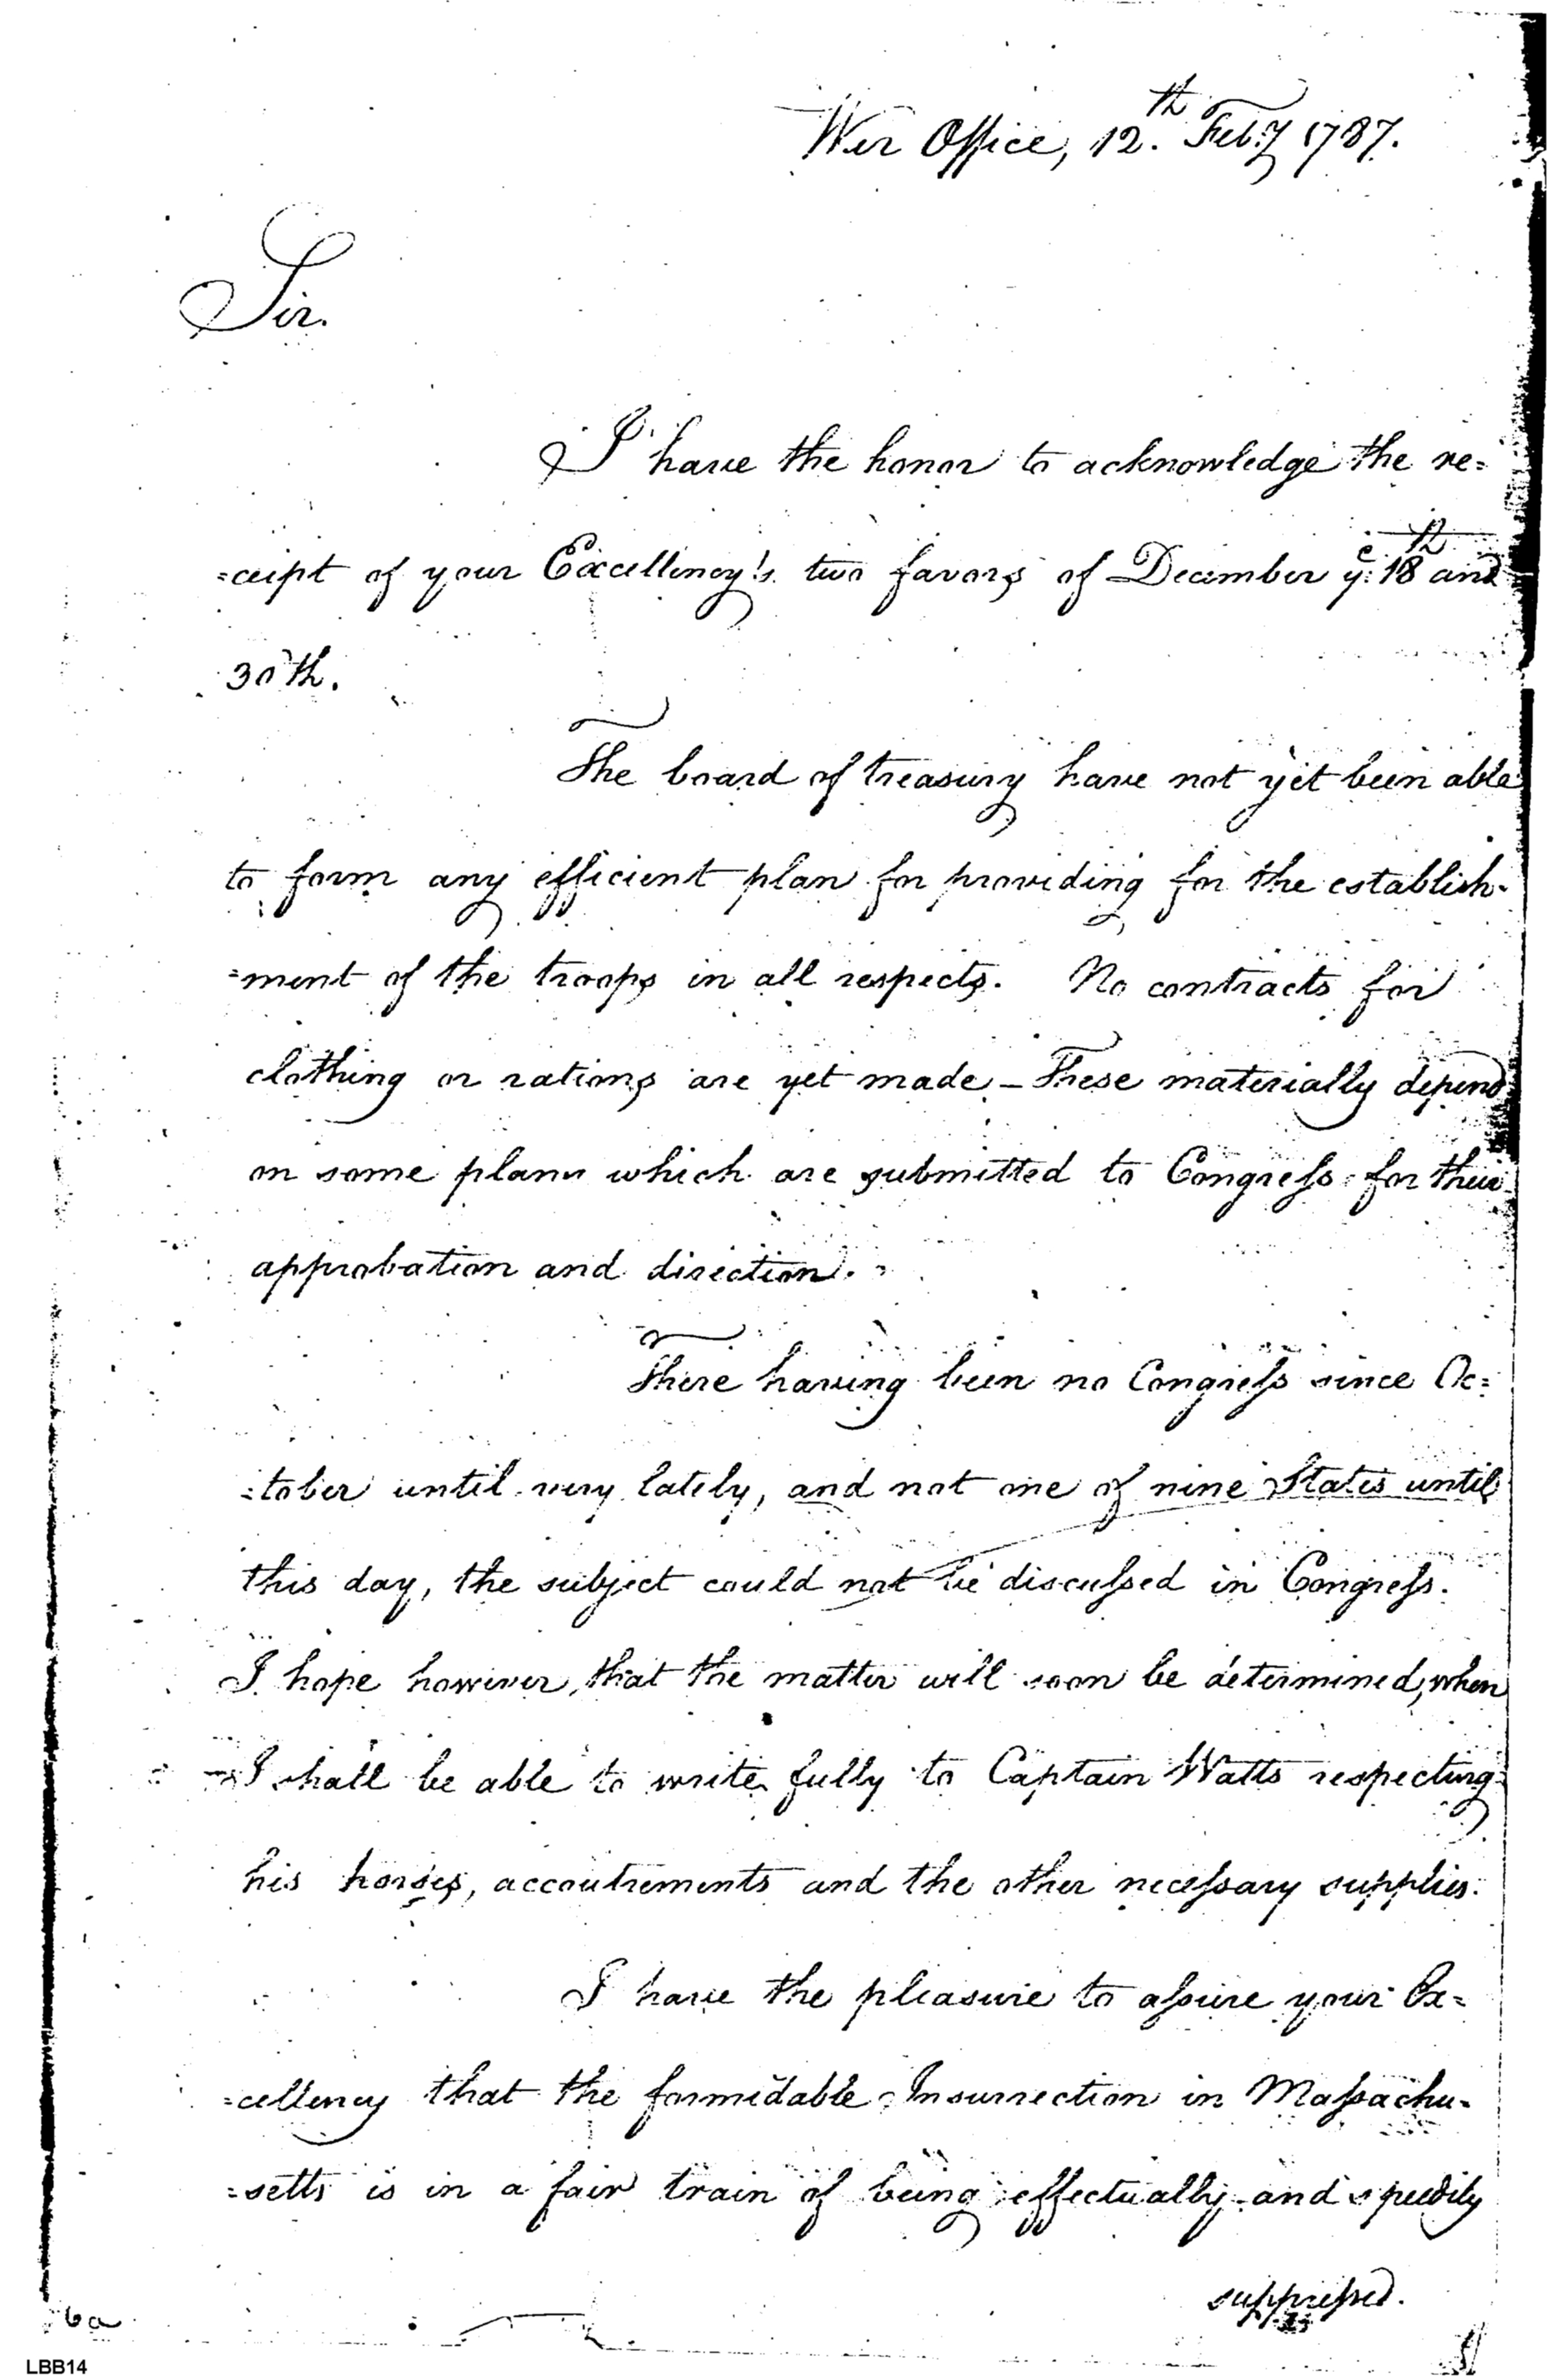 War Office, 12.th Feb.y 1787.
Sir.
I have the honor to acknowledge the re=
=ceipt of your Excellency's two favors of December ye. 18th and
30th.
The board of treasury have not yet been able
to form any efficient plan for providing for the establish-
=ment of the troops in all respects. No contracts for
clothing or rations are yet made – These materially depend
on some plans which are submitted to Congress for their
approbation and direction.
There having been no Congress since Oc=
=tober until very lately, and not one of nine States until
this day, the subject could not be discussed in Congress.
I hope however, that the matter will soon be determined, when
I shall be able to write fully to Captain Watts respecting
his horses, accoutrements and the other necessary supplies.
I have the pleasure to assure your Ex=
=cellency that the formidable Insurrection in Massachu-
=setts is in a fair train of being effectually and speedily
suppressed.
6a
LBB14